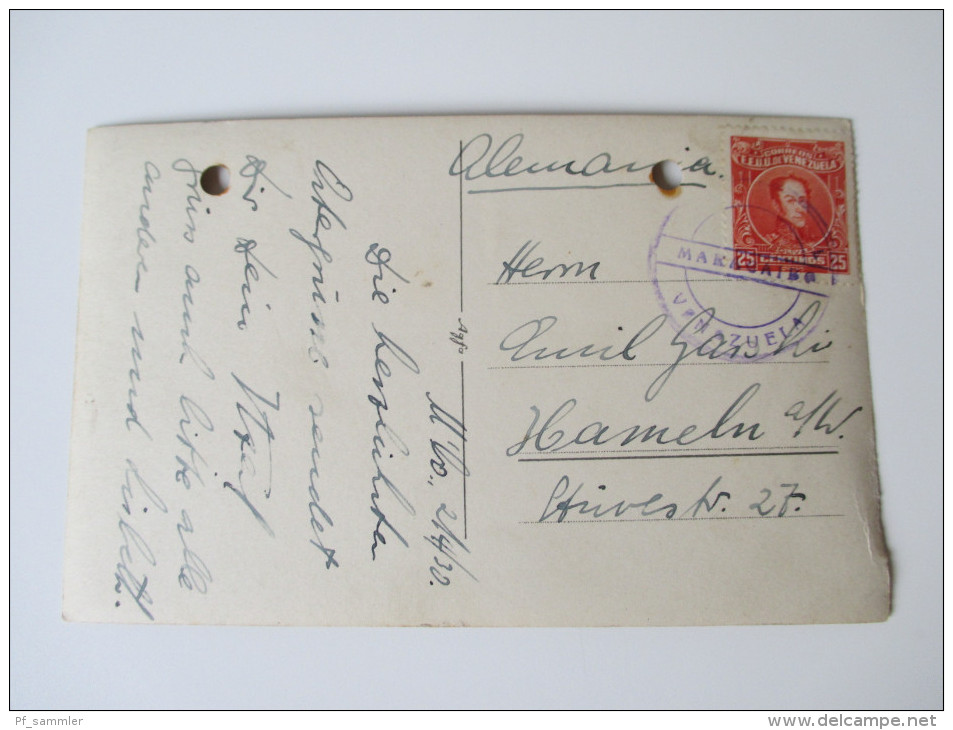 M'bo., 2/4/30.
Die herzlichsten
Ostergrüsse sendet
Dir Dein
grüss auch bitte alle
andern und Lisbeth.
Agfa
Alemania.
Herrn
Emil
Hameln a/W.
Stüvestr. 27.
CORREOS
E.E.U.U. DE VENEZUELA
25 CENTIMOS 25
MARACAIBO
VENEZUELA
Pf_sammler
www.delcampe.net